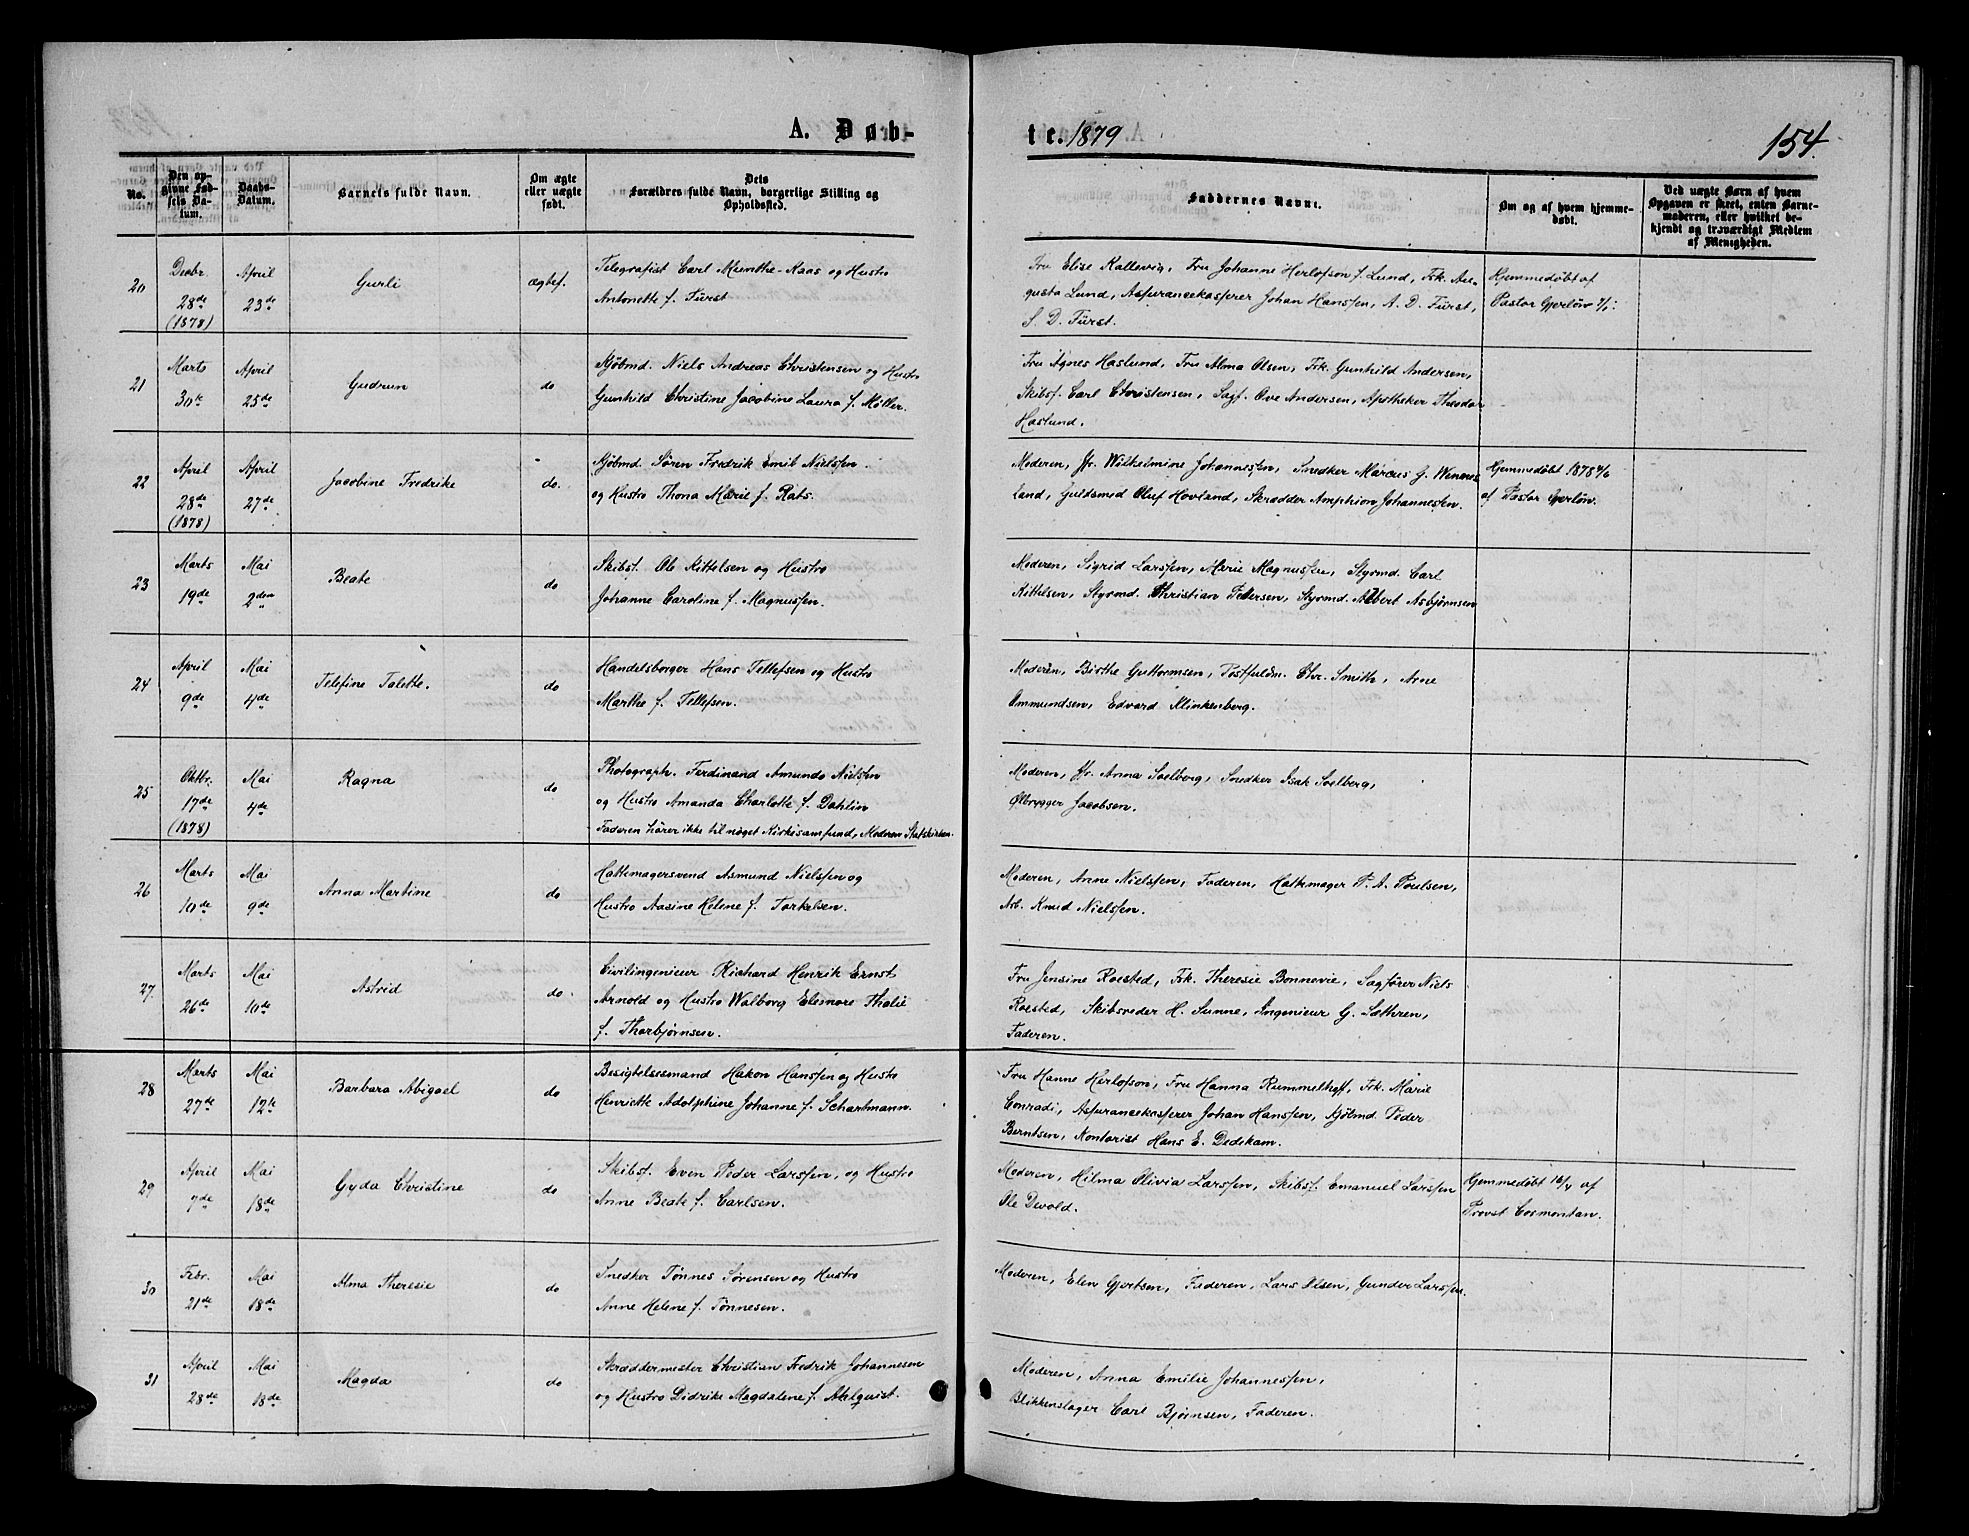 A. Døb-
te. 1879
154.
No.
Den op-
givne Fød-
sels Da-
tum.
Daabs-
Datum.
Barnets fulde Navn.
Om ægte
eller uægte
født.
Dets
Forældres fulde Navn, borgerlige Stilling og
Opholdssted.
Faddernes Navne.
Om og af hvem hjemme-
døbt.
Ved uægte Børn af hvem
Opgaven er skeet, enten Barne-
moderen, eller hvilket be-
kjendt og troværdigt Medlem
af Menigheden.
20
Decbr.
28de
(1878)
April
23de
Gurli
ægtef.
Telegrafist Carl Munthe-Kaas og Hustro
Antonette f. Fürst
Fru Elise Kallevig, Fru Johanne Herlofson f. Lund, Frk. Au-
gusta Lund, Assurancekasserer Johan Hanssen, A. D. Fürst,
S. D. Fürst.
Hjemmedøbt af
Pastor Gjerløv
21
Marts
30te
April
25de
Gudrun
do
Kjøbmd. Niels Andreas Christensen og Hustro
Gunhild Christine Jacobine Laura f. Møller.
Fru Agnes Haslund, Fru Alma Olsen, Frk. Gunhild Andersen,
Skibsf. Carl Christensen, Sagf. Ove Andersen, Apotheker Theodor
Haslund.
22
April
28de
(1878)
April
27de
Jacobine Fredrike
do.
Kjøbmd. Sören Fredrik Emil Nielssen
og Hustro Thona Marie f. Rats.
Moderen, Jfr. Wilhelmine Johannessen, Snedker Marcus J. Wennes-
land, Guldsmed Oluf Hovland, Skrædder Amphion Johannessen.
Hjemmedøbt 1878 4/6
af Pastor Gjerløv.
23
Marts
19de
Mai
2den
Beate
do
Skibsf. Ole Kittelsen og Hustro
Johanne Caroline f. Magnussen.
Moderen, Sigrid Larssen, Marie Magnussen, Styrmd. Carl
Kittelsen, Styrmd. Christian Petersen, Styrmd. Albert Asbjørnsen
24
April
9de
Mai
4de
Telefine Talette.
do
Handelsborger Hans Tellefsen og Hustro
Marthe f. Tellefsen.
Moderen, Birthe Guttormsen, Postfuldm. Chr. Smith, Arne
Ommundsen, Edvard Klinkenberg.
25
Oktbr.
17de
(1878)
Mai
4de
Ragna
do
Photograph. Ferdinand Amundo Nielsen
og Hustro Amanda Charlotte f. Dahlin
Faderen hører ikke til noget Kirkesamfund, Moderen Statskirken.
Moderen, Jfr. Anna Soelberg, Snedker Isak Soelberg,
Ølbrygger Jacobsen.
26
Marts
10de
Mai
9de
Anna Martine
do
Hattemagersvend Asmund Nielssen og
Hustro Aasine Helene f. Torkelsen.
Moderen, Anne Nielssen, Faderen, Hattemager P. A. Poulsen,
Arb. Knud Nielssen.
27.
Marts
26de
Mai
10de
Astrid
do.
Civilingenieur Richard Henrik Ernst
Arnold og Hustro Walborg Eleonore Thalie
f. Thorbjørnsen.
Fru Jensine Roested, Frk. Theresie Bonnevie, Sagfører Niels
Roested, Skibsreder H. Sunne, Ingenieur G. Sæthren,
Faderen.
28
Marts
27de
Mai
12te
Barbara Abigael
do
Besigtelsesmand Hakon Hanssen og Hustro
Henriette Adolphine Johanne f. Schartmann.
Fru Hanne Herlofson, Fru Hanna Rummelhoff, Frk. Marie
Conradi, Assurancekasserer Johan Hanssen, Kjøbmd. Peder
Berntsen, Kontorist Hans E. Dedekam.
29
April
7de
Mai
18de
Gyda Christine
do
Skibsf. Even Peder Larssen, og Hustro
Anne Beate f. Carlsen.
Moderen, Hilma Olivia Larssen, Skibsf. Emanuel Larssen
Ole Devold.
Hjemmedøbt 16/4 af
Provst Cormontan.
30
Febr.
21de
Mai
18de
Alma Theresie
do
Snedker Tönnes Sørensen og Hustro
Anne Helene f. Tönnesen.
Moderen, Elen Gjertsen, Faderen, Lars Olsen, Gunder Larssen.
31
April
28de
Mai
18de
Magda
do
Skræddermester Christian Fredrik Johannesen
og Hustro Didrike Magdalene f. Ahlquist.
Moderen, Anna Emilie Johannessen,
Blikkenslager Carl Bjørnsen, Faderen.